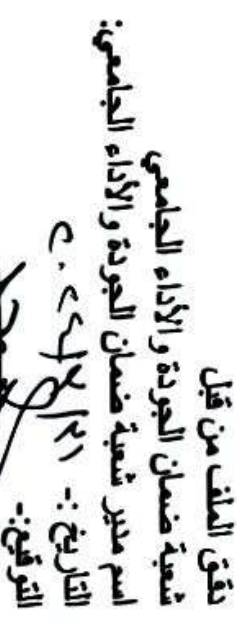 دقق الملف من قبل
شعبة ضمان الجودة والأداء الجامعي
اسم مدير شعبة ضمان الجودة والأداء الجامعي:
التاريخ :-
التوقيع:-